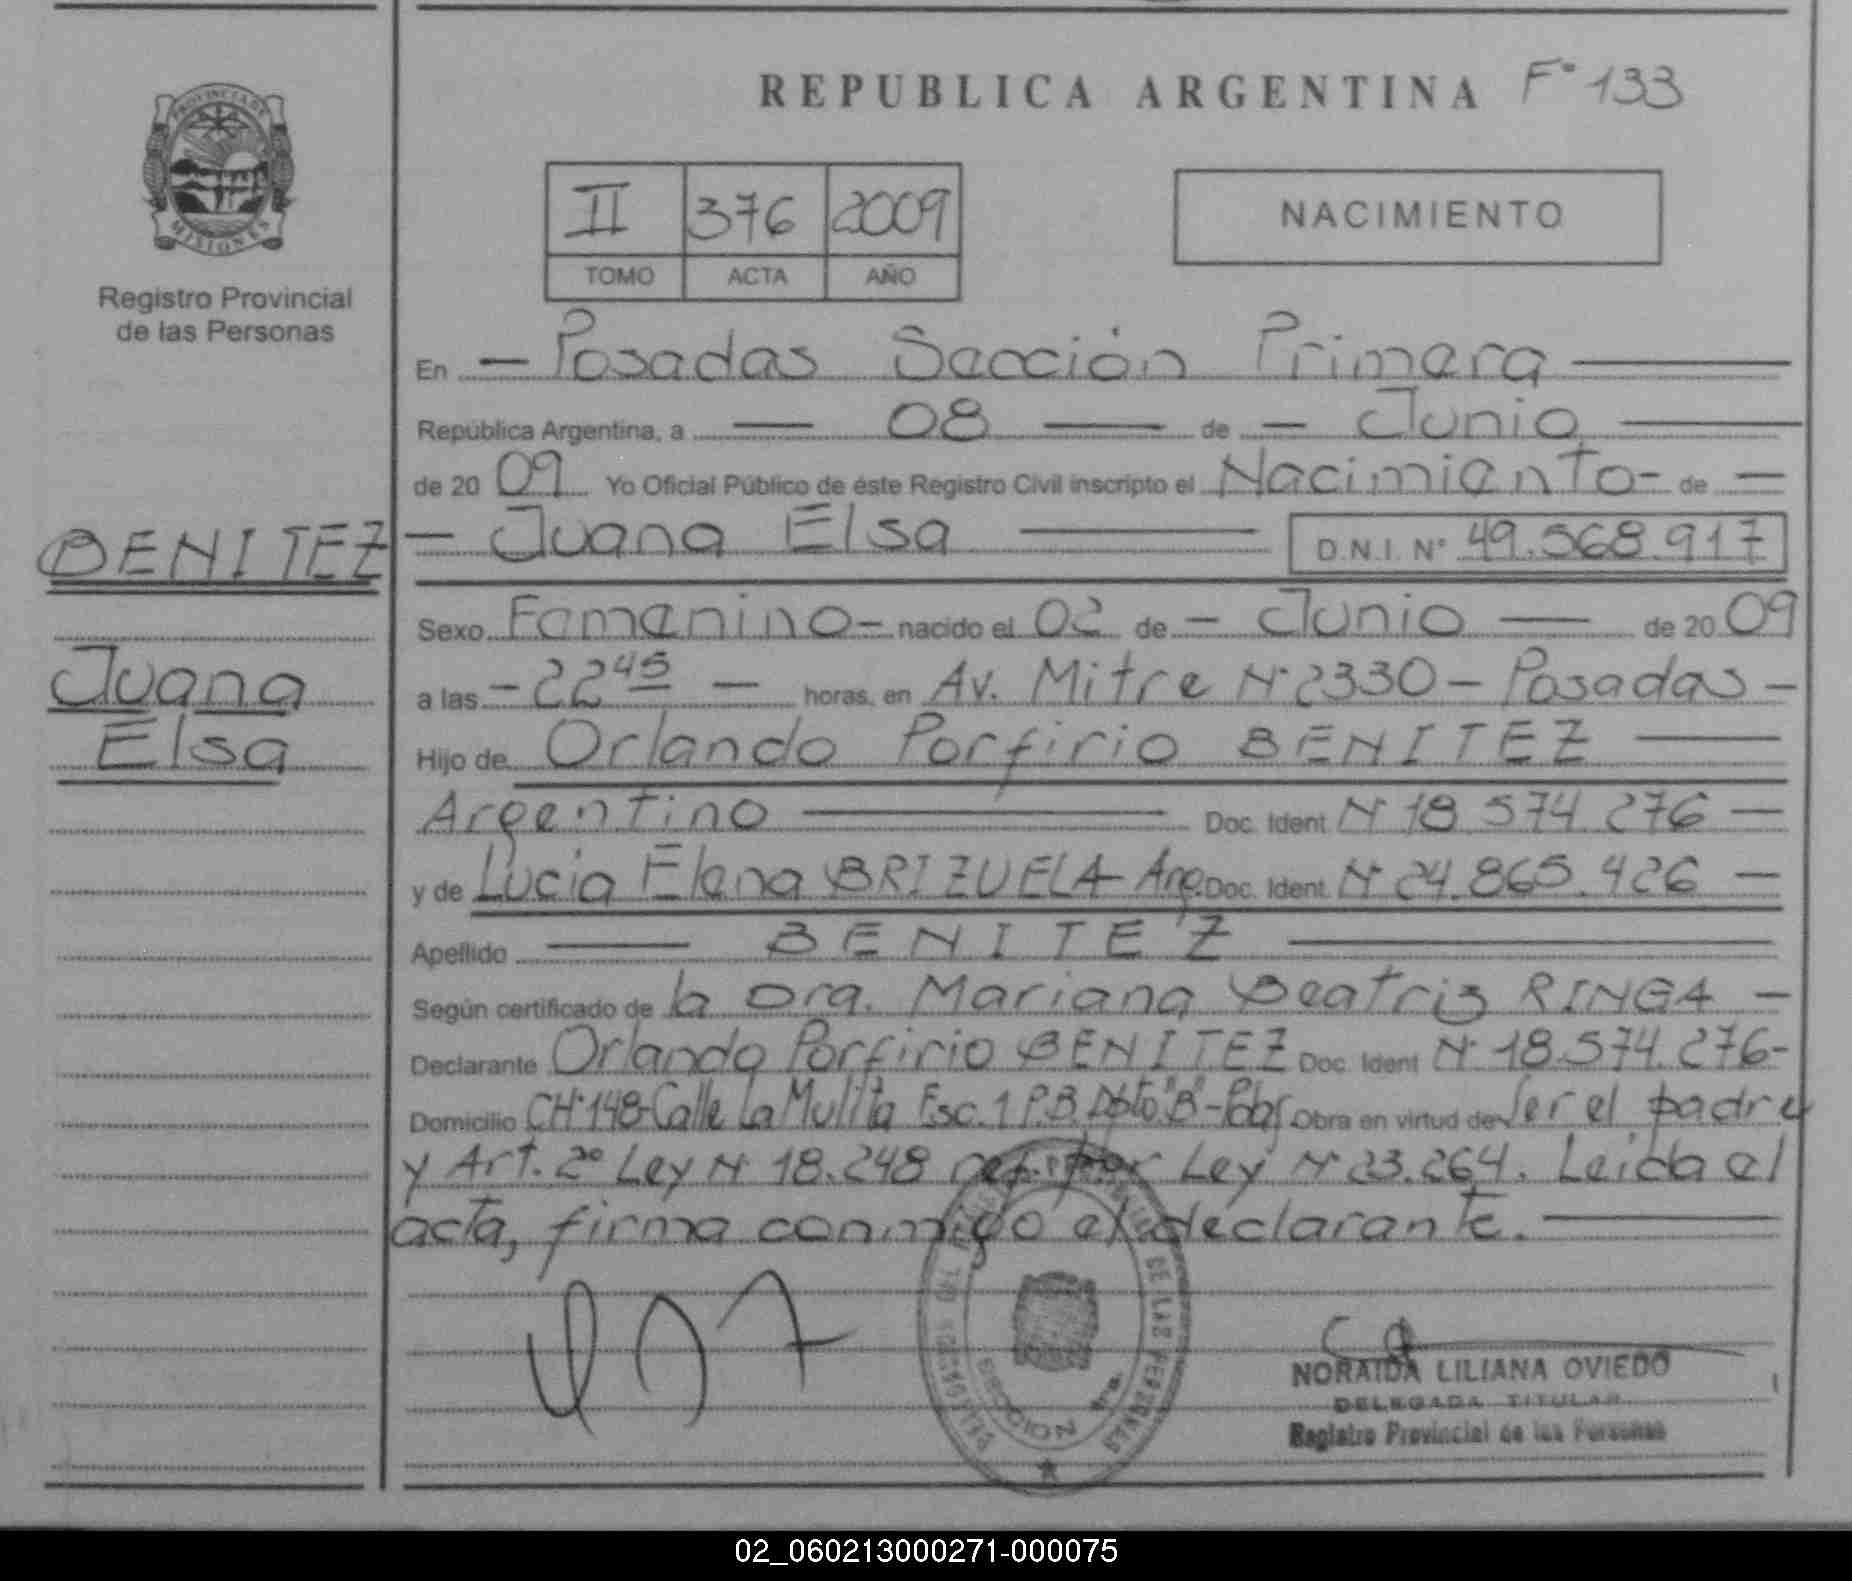 REPUBLICA ARGENTINA F° 133
PROVINCIA DE
MISIONES
Registro Provincial
de las Personas
II 376 2009
TOMO ACTA AÑO
NACIMIENTO
En — Posadas Sección Primera —
República Argentina, a — 08 — de — Junio —
de 20 09 Yo Oficial Público de éste Registro Civil inscripto el Nacimiento - de —
— Juana Elsa — D.N.I. N° 49.568.917
BENITEZ
Juana
Elsa
Sexo Femenino - nacido el 02 de — Junio — de 20 09
a las - 22 45 — horas, en Av. Mitre N° 2330 - Posadas -
Hijo de Orlando Porfirio BENITEZ —
Argentino — Doc. Ident N° 18.574.276 —
y de Lucia Elena BRIZUELA - Arg. Doc. Ident. N° 24.865.426 —
Apellido — BENITEZ —
Según certificado de la Dra. Mariana Beatriz RINGA —
Declarante Orlando Porfirio BENITEZ Doc. Ident N° 18.574.276-
Domicilio CH° 148-Calle La Mulita Esc. 1 P.B. Dpto."B"-Pdas. Obra en virtud de Ser el padre
y Art. 2° Ley N° 18.248 ref. por Ley N° 23.264. Leida el
acta, firma conmigo el declarante. —
DE LAS PERSONAS
SECCION 1ra.
NORAIDA LILIANA OVIEDO
DELEGADA TITULAR
Registro Provincial de las Personas
02_060213000271-000075